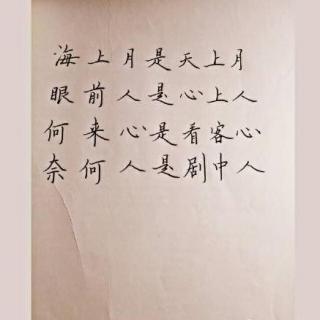 海上月是天上月
眼前人是心上人
何来心是看客心
奈何人是剧中人